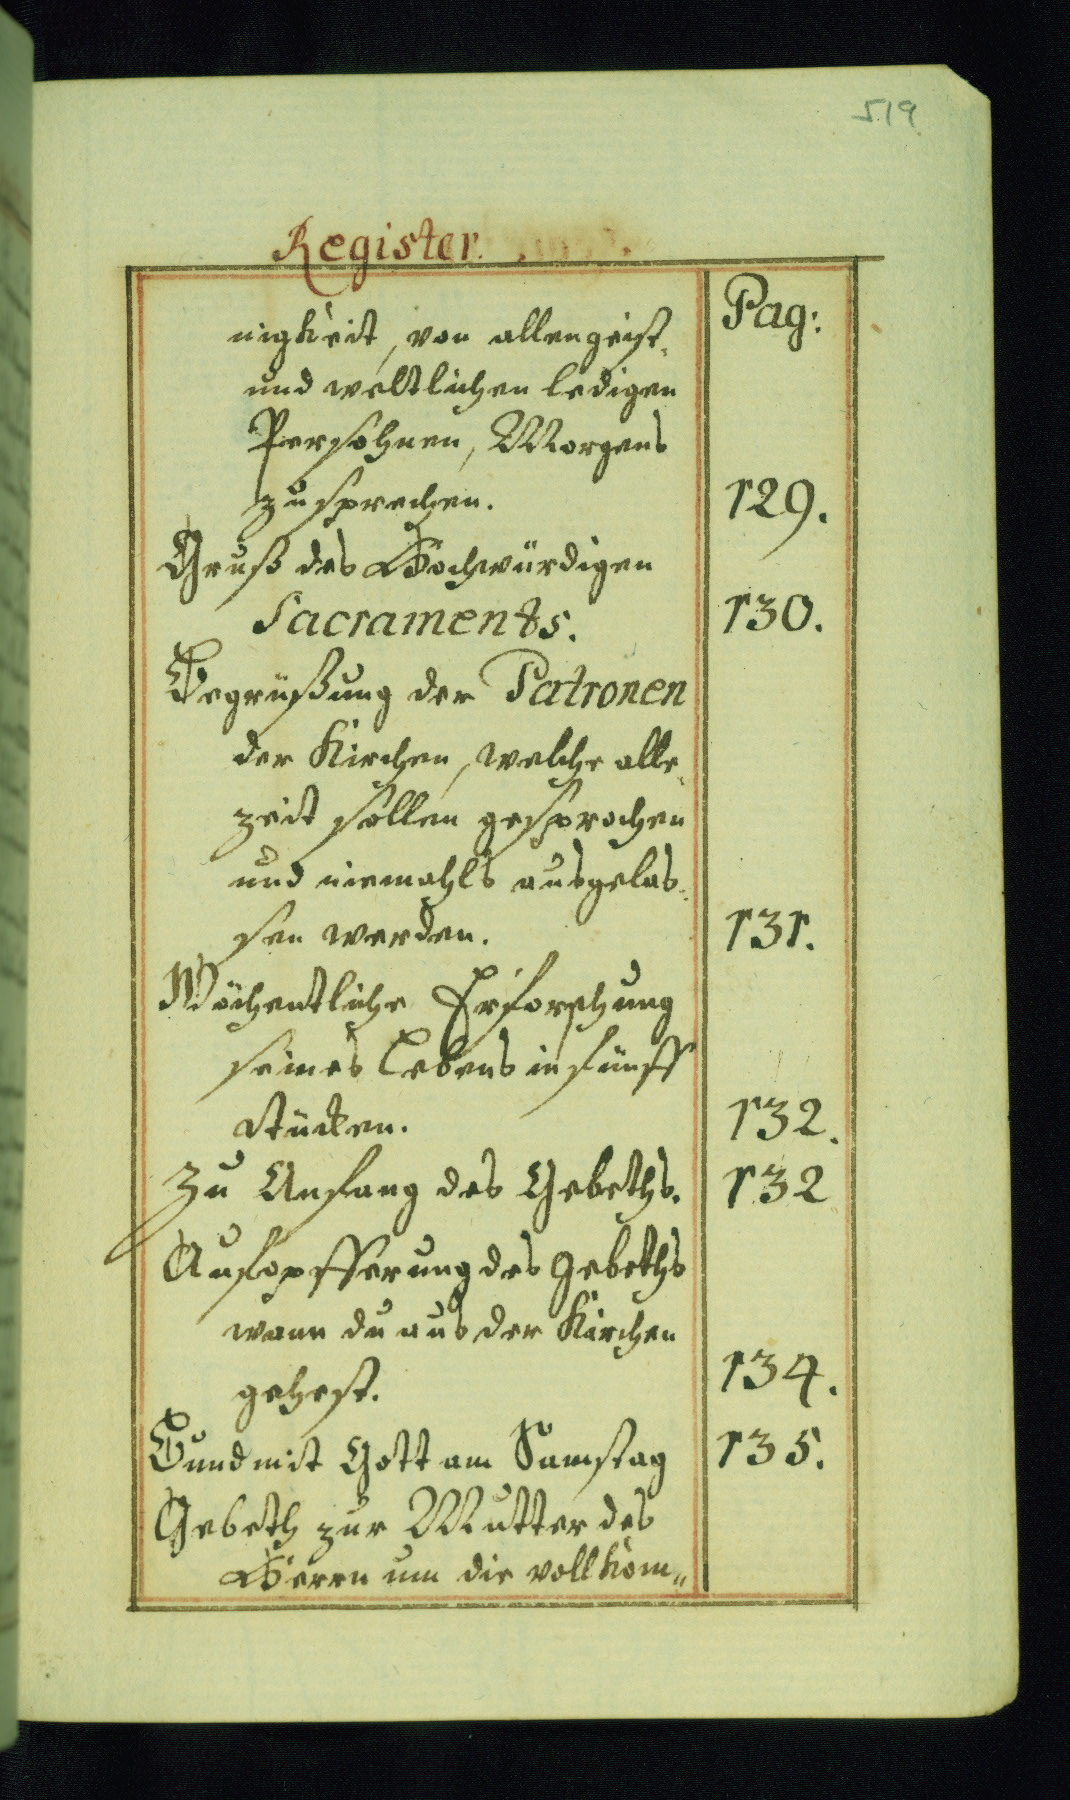 519
Register.
Pag:
nigkeit, von allen geist-
und weltlichen ledigen
Persohnen, Morgens
zu sprechen. 129.
Gruß des Hochwürdigen
Sacraments. 130.
Begrüßung der Patronen
der Kirchen, welche alle-
zeit sollen gesprochen
und niemahls ausgelas-
sen werden. 131.
Wöchentliche Erforschung
seines Lebens in fünff
Stücken. 132.
Zu Anfang des Gebeths. 132
Aufopfferung des Gebeths
wann du aus der Kirchen
gehest. 134.
Bund mit Gott am Samstag 135.
Gebeth zur Mutter des
Herrn um die vollkom„